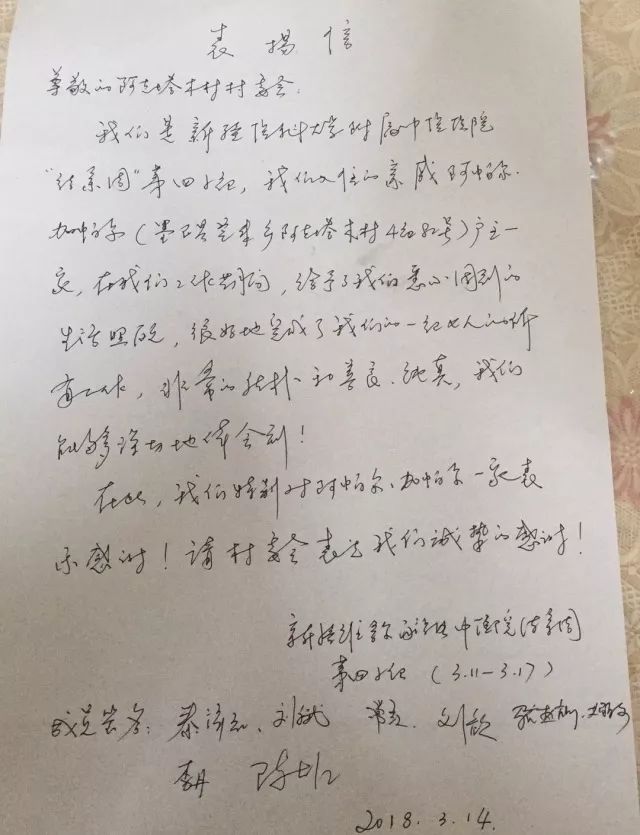 表扬信
尊敬的阿克塔木村村委会：
我们是新疆医科大学附属中医医院
“结亲周”第四小组，我们入住的亲戚阿帕尔·
加帕尔（墨玉县芒来乡阿克塔木村4组82号）户主一
家，在我们工作期间，给予了我们悉心周到的
生活照顾，很好地完成了我们的一组七人的所
有工作，非常的纯朴和善良、纯真，我们
能够深切地体会到！
在此，我们特别对阿帕尔·加帕尔一家表
示感谢！请村委会表达我们诚挚的感谢！
新疆维吾尔自治区中医院结亲周
第四小组（3.11—3.17）
成员签名：刘斌 刘歆
李丹 陈
2018.3.14.